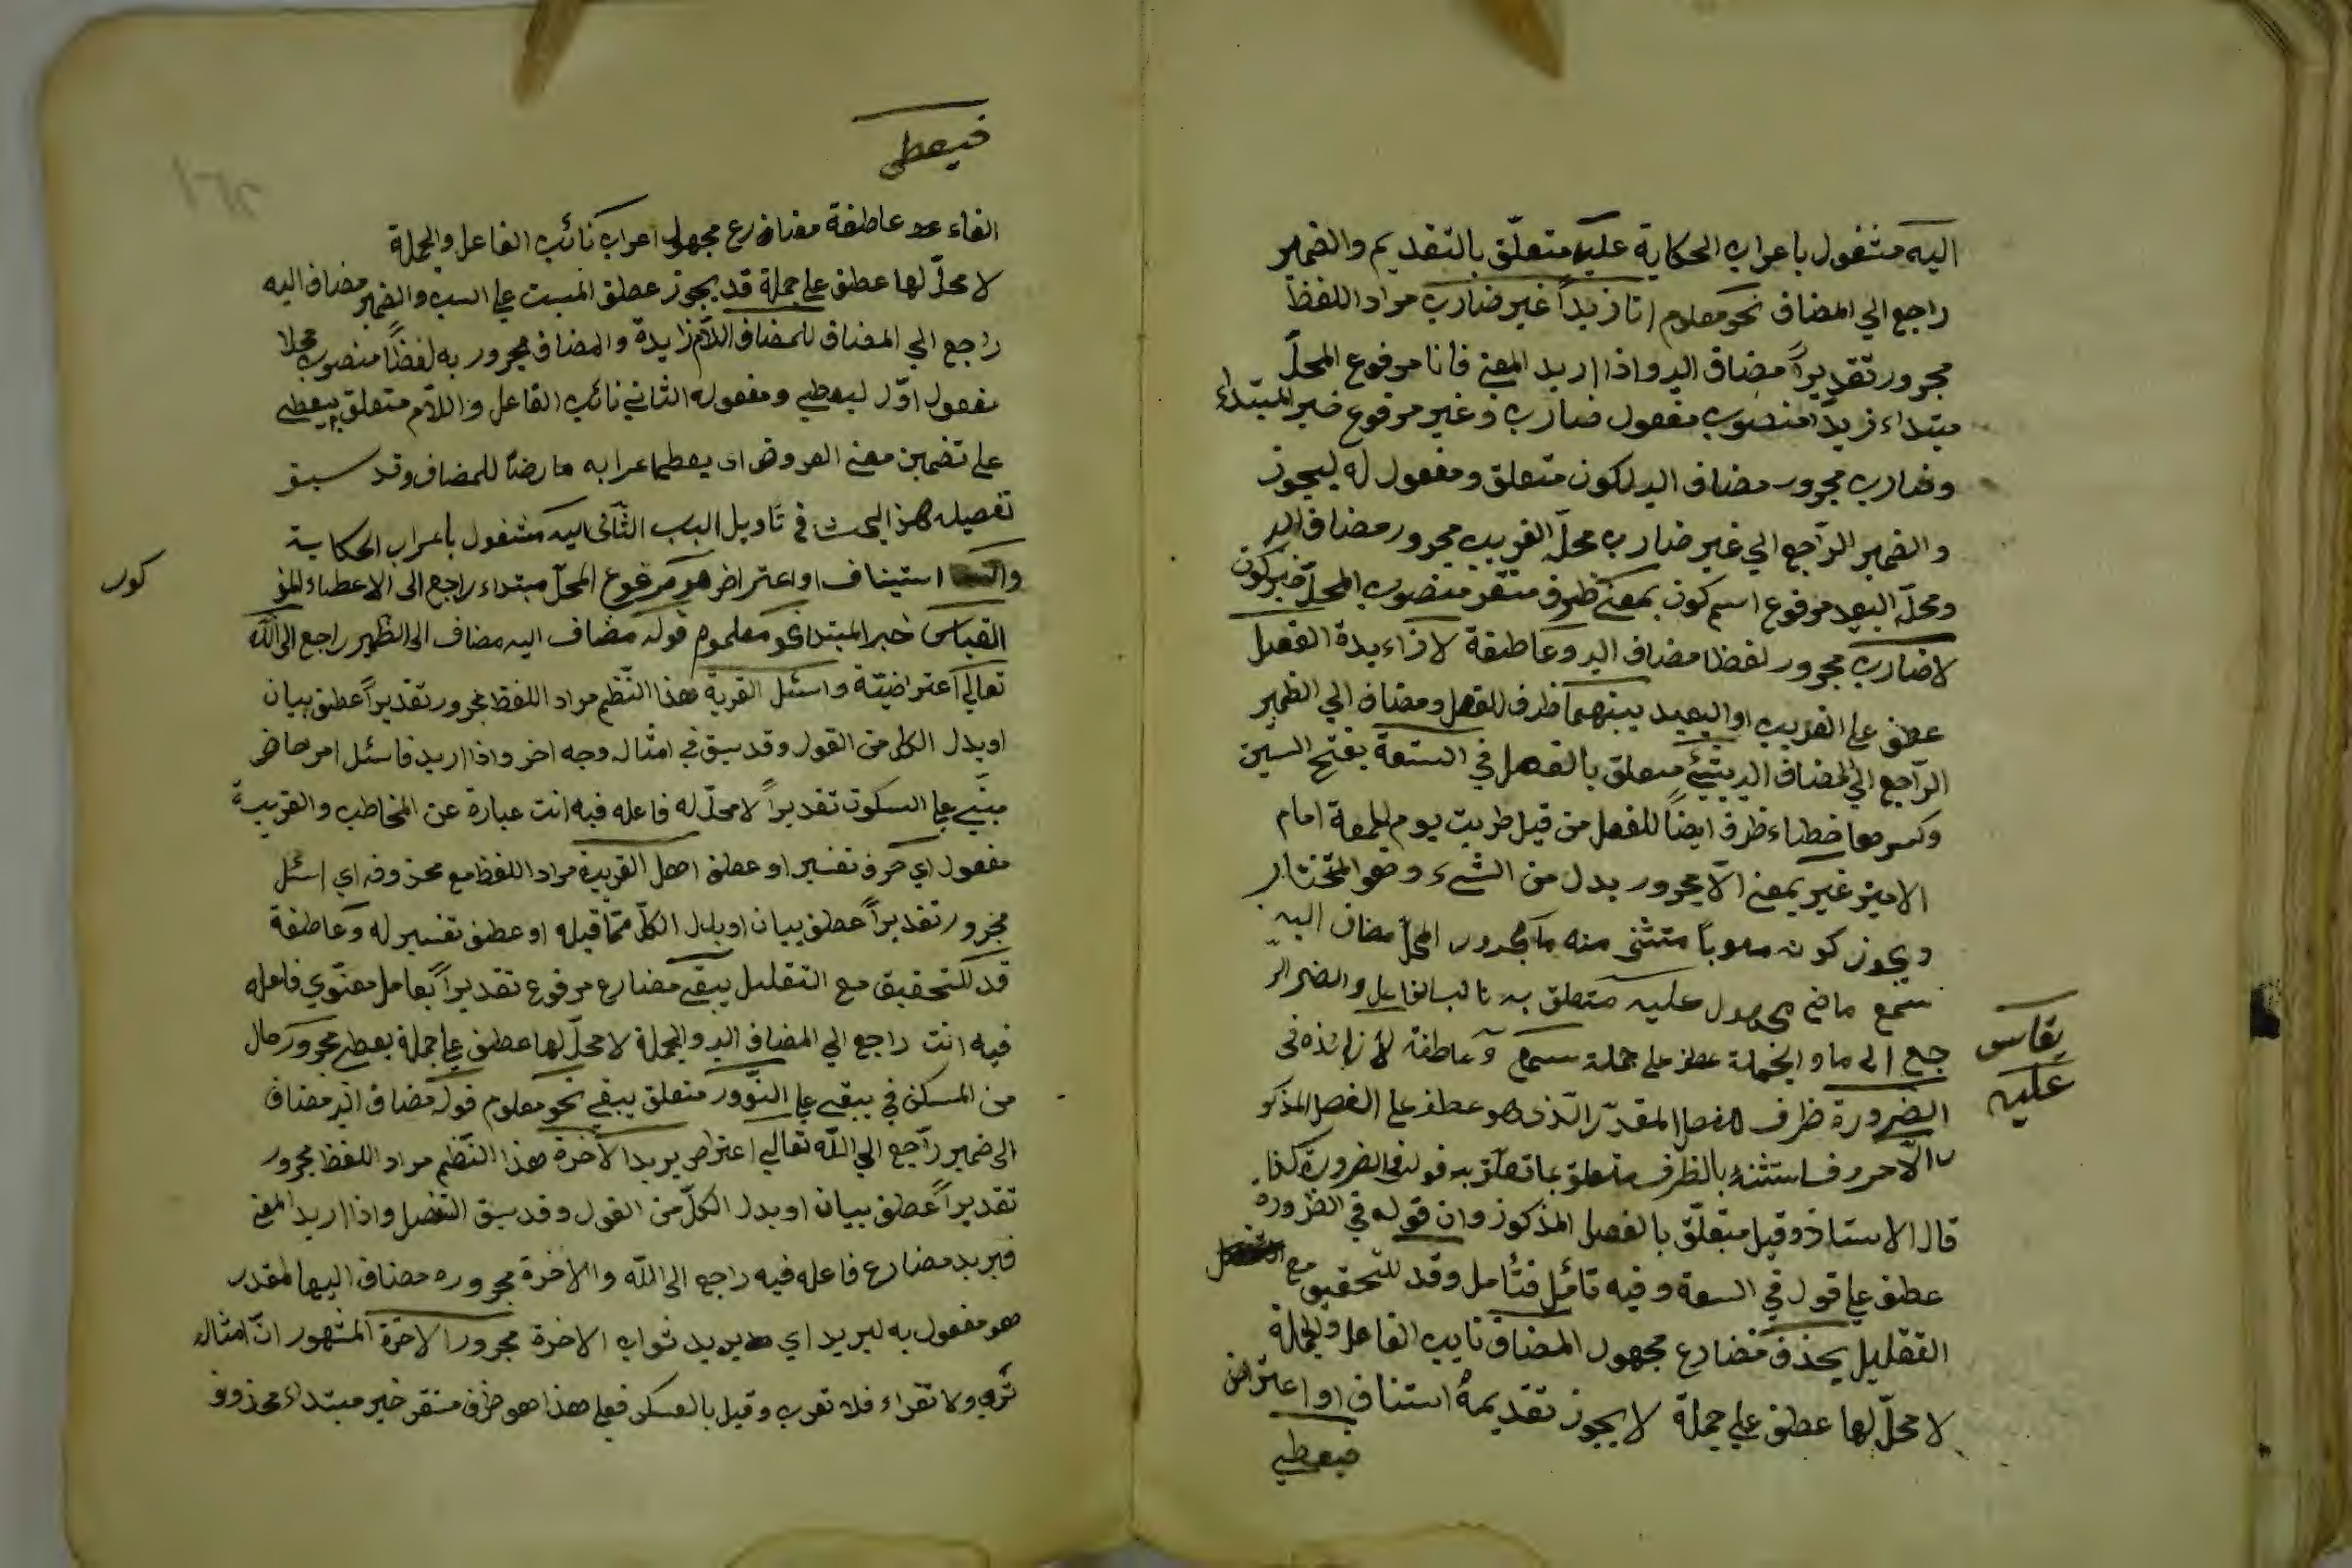 اليه مشغول باعراب الحكاية عليه متعلّق بالتقديم والضمير
راجع الي المضاف نحو معلوم انا زيداً غير ضارب مراد اللفظ
مجرور تقديراً مضاف اليه واذا اريد المعنى فانا مرفوع المحلّ
مبتداء زيداً منصوب مفعول ضارب وغير مرفوع خبر المبتداء
وضارب مجرور مضاف اليه لكون متعلق ومفعول له ليجوز
والضمير الرّاجع الي غير ضارب محلّه القريب مجرور مضاف اليه
ومحلّه البعيد مرفوع اسم كون بمعنى ظرف مستقر منصوب المحلّ خبر كون
لا ضارب مجرور لفظا مضاف اليه وعاطفة لا زاءيدة الفصل
عطف علي القريب او البعيد بينهما ظرف للفصل ومضاف الي الضمير
الرّاجع الي المضاف اليه بشئ متعلق بالفصل في السّعة بفتح السين
وكسرها خطاء ظرف ايضاً للفصل من قبيل ضربت يوم الجمعة امام
الامير غير بمعنى الّا مجرور بدل من الشئ وهو المختار
ويجوز كونه منصوباً مستثنى منه ما مجرور المحلّ مضاف اليه
سمع ماض مجهول عليه متعلق به نائب الفاعل والضمير الرّ
جع الى ما والجملة عطف على جملة سمع و عاطفة لا زائدة فى
يقاس
عليه
الضرورة ظرف الفصل المقدّر الّذى هو عطف على الفصل المذكو
ر الّا حرف استثناء بالظرف متعلق بما تعلّق به قوله فى الضرورة كذا
قال الاستاذ وقيل متعلّق بالفصل المذكور وان قوله في الضرورة
عطف علي قوله في السعة وفيه تأمّل فتأمل وقد للتحقيق مع
التقليل يحذف مضارع مجهول المضاف نايب الفاعل والجملة
لا محلّ لها عطف علي جملة لا يجوز تقديمه استناف او اعتراض
فيعطي
فيعطى
الفاء عاطفة مضارع مجهول اعراب نائب الفاعل والجملة
لا محلّ لها عطف علي جملة قد يجوز عطف المسبب علي السبب والضمير مضاف اليه
راجع الي المضاف للمضاف اللّام زايدة والمضاف مجرور به لفظاً منصوب محلا
مفعول اوّل ليعطي ومفعوله الثاني نائب الفاعل واللّام متعلق بيعطي
علي تضمين معنى العروض اى يعطى اعرابه عارضا للمضاف وقد سبق
تفصيله هذا البحث في تأويل الباب الثّانى اليه مشغول باعراب الحكاية
استيناف او اعتراض هو مرفوع المحلّ مبتداء راجع الى الاعطاء المذ
كور
القياس خبر المبتدا نحو معلوم قوله مضاف اليه مضاف الى الضمير راجع الى الله
تعالي اعتراضيّة واسئل القرية هذا النّظم مراد اللفظ مجرور تقديراً عطف بيان
او بدل الكل من القول وقد سبق في امثاله وجه اخر واذا اريد فاسئل امر حاضر
مبني علي السكون تقديراً لا محلّ له فاعله فيه انت عبارة عن المخاطب والقرية
مفعول اي حرف تفسير او عطف اهل القرية مراد اللفظ مع محذوفه اي اسئل
مجرور تقديراً عطف بيان او بدل الكلّ ممّا قبله او عطف تفسير له وعاطفة
قد للتحقيق مع التقليل يبقى مضارع مرفوع تقديراً بعامل معنوي فاعله
فيه انت راجع الي المضاف اليه والجملة لا محلّ لها عطف علي جملة يعطى مجرور حال
من المسكن في يبقى علي النّدور متعلق يبقي نحو معلوم قوله مضاف اليه مضاف
الى ضمير راجع الي اللّه تعالي اعتراض يريد الآخرة هذا النّظم مراد اللفظ مجرور
تقديراً عطف بيان او بدل الكلّ من القول وقد سبق التفصيل واذا اريد المعنى
فيريد مضارع فاعله فيه راجع الى اللّه والآخرة مجروره مضاف اليها لمقدر
هو مفعول به ليريد اي يريد ثواب الاخرة مجرور الآخرة المشهور انّ امثاله
ترى ولا تقراء فلا تعرب وقيل بالعسكر فعلي هذا هو ظرف مستقر خبر مبتداء محذوف